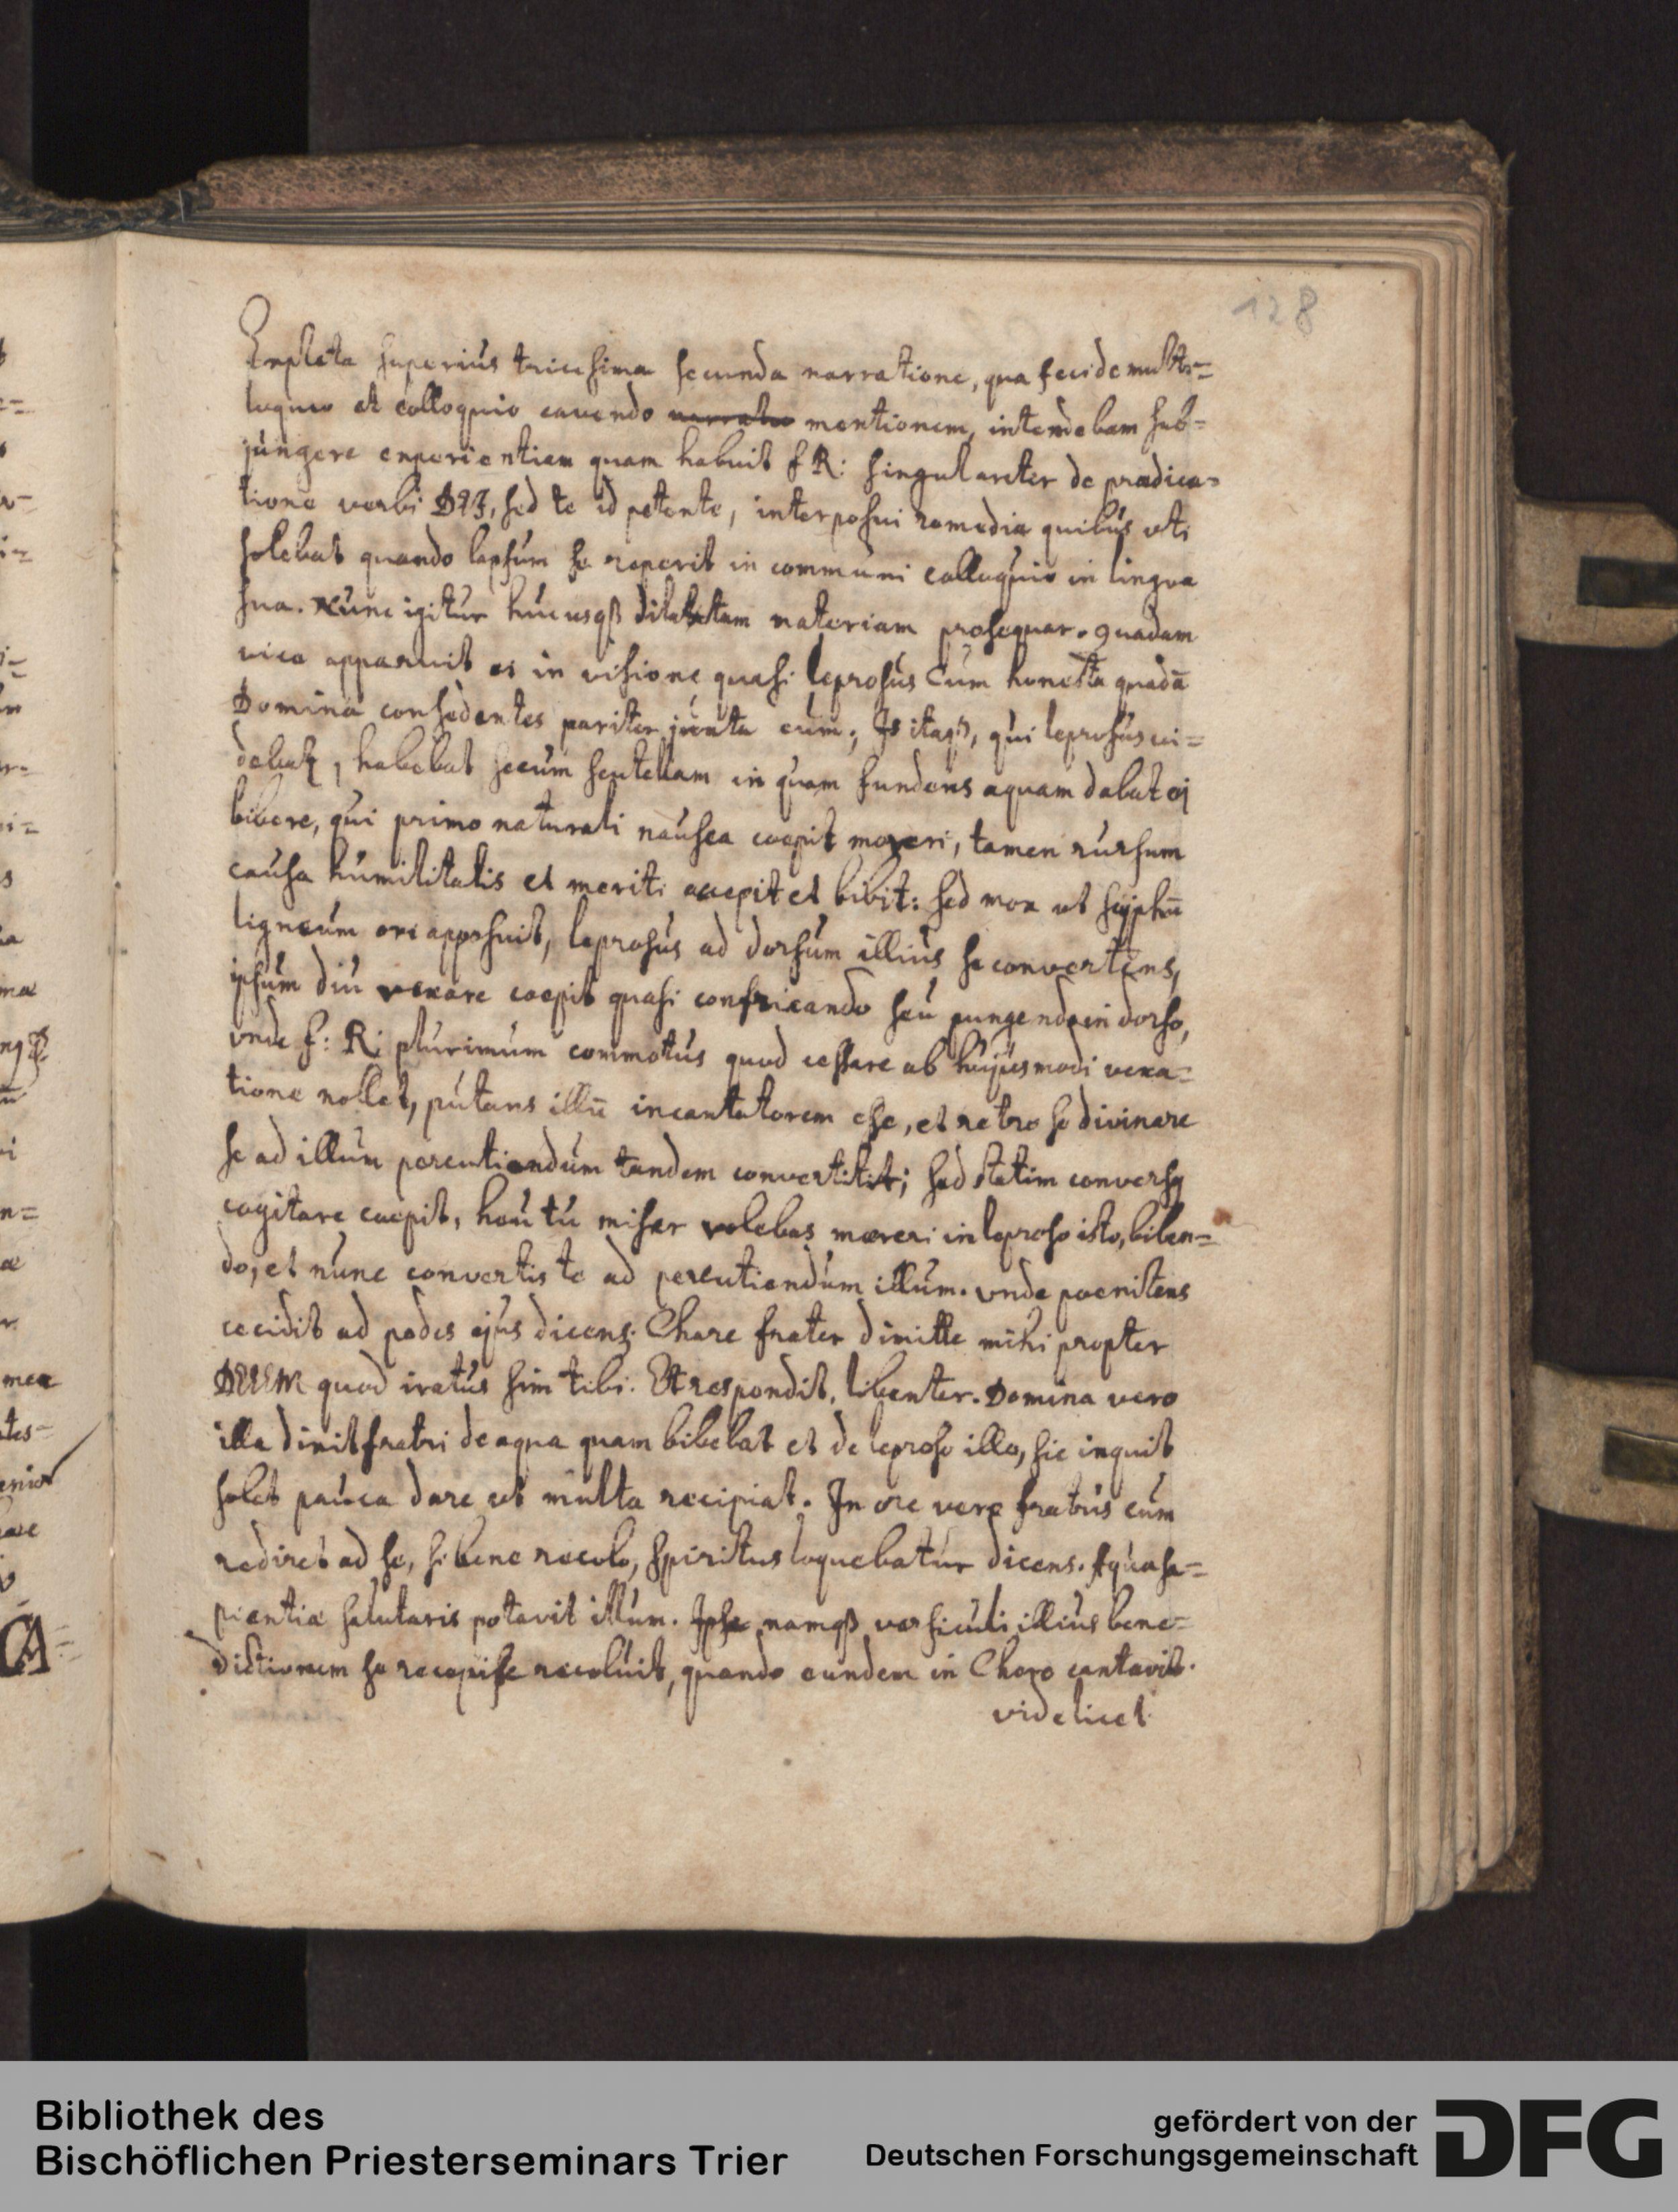 128
Expleta superius tricesima secunda narratione, qua feci de multi=
loquio et colloquio cavendo mentionem, intendebam sub=
jungere experientiam quam habuit f R: singulariter de prædica=
tione verbi DEI, sed te id petente, interposui remedia quibus uti
solebat quando lapsum se reperit in communi colloquio in lingua
sua. Nunc igitur hucusqß dilatatam materiam prosequar. Quadam
vice apparuit ei in visione quasi leprosus Cum honesta quadā
Domina consedentes pariter juxta eum; Is itaqß, qui leprosus vi=
debatur, habebat secum scutellam in quam fundens aquam dabat ei
bibere, qui primo naturali nausea coepit moveri, tamen rursum
causa humilitatis et meriti accepit et bibit: sed mox ut scyphū
ligneum ori apposuit, leprosus ad dorsum illius se convertens,
ipsum diu vexare coepit quasi confricando seu pungendo in dorso,
vnde f: R: plurimum commotus quod cessare ab hujusmodi vexa=
tione nollet, putans illū incantatorem esse, et retro se divinare
se ad illum percutiendum tandem convertit; sed statim conversus
cogitare coepit, heu tu miser volebas mereri in leproso isto, biben=
do, et nunc convertis te ad percutiendum illum. vnde poenitens
cecidit ad pedes ejus dicens: Chare frater dimitte mihi propter
DEUM quod iratus sim tibi. Et respondit, libenter. Domina vero
illa dixit fratri de aqua quam bibebat et de leproso illo, sic inquit
solet pauca dare ut multa recipiat. In ore vero fratris cum
rediret ad se, si bene recolo, Spiritus loquebatur dicens. Aqua sa=
pientiæ salutaris potavit illum. Ipse namqß versiculi illius bene=
dictionem se recepisse recoluit, quando eundem in Choro cantavit.
videlicet
Bibliothek des
Bischöflichen Priesterseminars Trier
gefördert von der
Deutschen Forschungsgemeinschaft
DFG